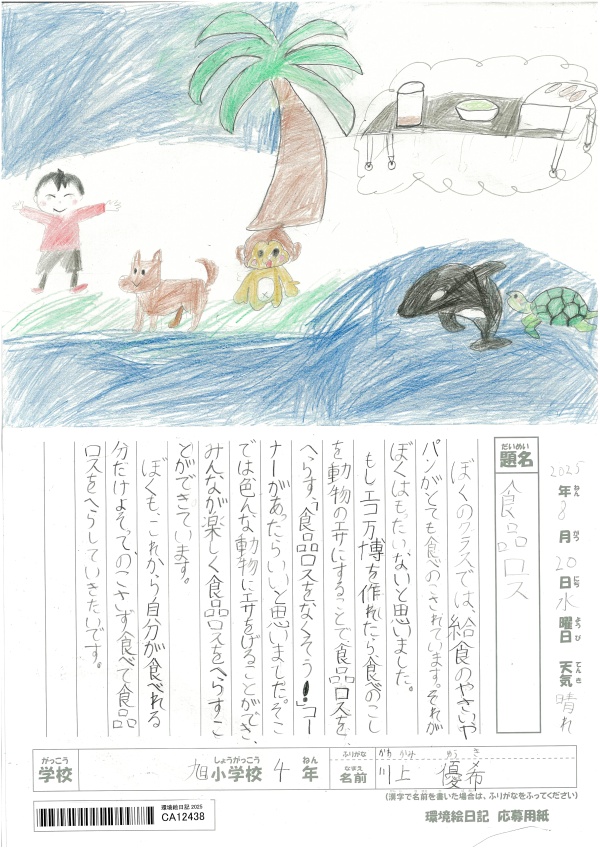 2025年8月20日水曜日 天気 晴れ
ねん がつ にち ようび てんき
だいめい
題名
食品ロス
ぼくのクラスでは、給食のやさいや
パンがとても食べのこされています。それが
ぼくはもったいないと思いました。
もしエコ万博を作れたら、食べのこし
を動物のエサにすることで食品ロスを、
へらす、「食品ロスをなくそう!」コー
ナーがあったらいいと思いました。そこ
では色んな動物にエサをげることができ、
みんなが楽しく食品ロスをへらすこ
とができています。
ぼくも、これから自分が食べれる
分だけよそって、のこさず食べて食品
ロスをへらしていきたいです。
がっこう しょうがっこう ねん
学校 旭小学校4年
ふりがな かわ かみ ゆう き
なまえ
名前 川上 優希
(漢字で名前を書いた場合は、ふりがなをふってください)
環境絵日記 2025
CA12438
環境絵日記 応募用紙